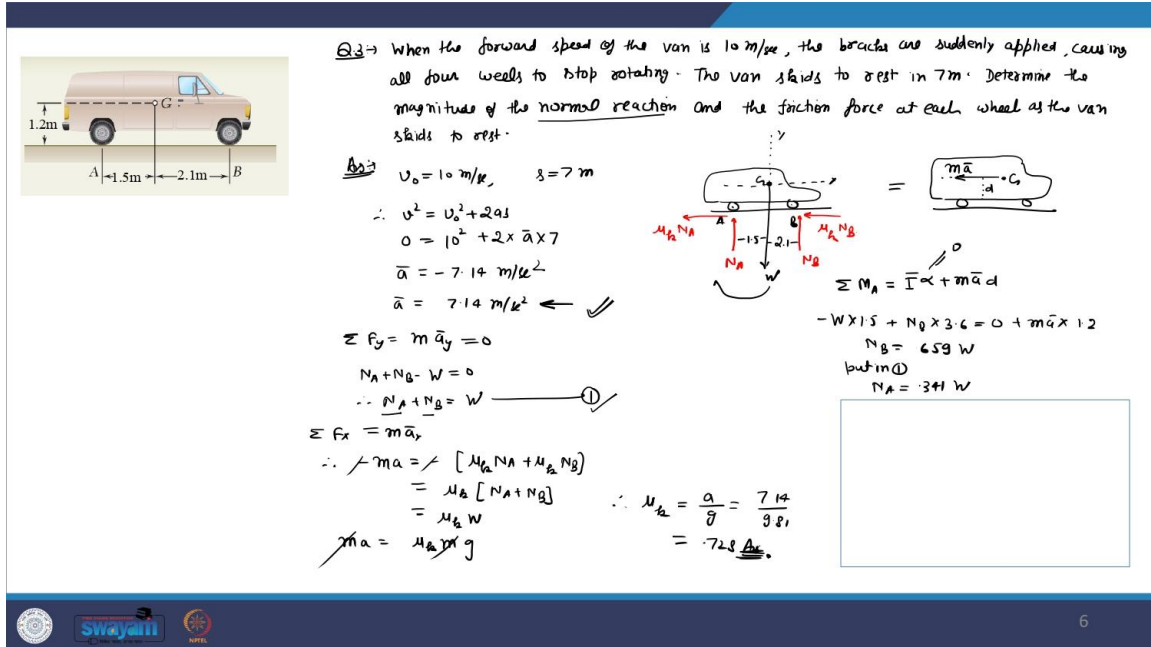 Q.3→ When the forward speed of the van is 10 m/sec, the bracks are suddenly applied, causing
all four weels to stop rotating. The van skids to rest in 7m. Determine the
magnitude of the normal reaction and the friction force at each wheel as the van
skids to rest.
G
1.2m
A
1.5m
2.1m
B
Ans→
v₀ = 10 m/sec, s = 7 m
∴ v² = v₀² + 2as
0 = 10² + 2 × ā × 7
ā = - 7.14 m/sec²
ā = 7.14 m/sec² ← ✓
Σ Fy = m āy = 0
NA + NB - W = 0
∴ NA + NB = W ——— ① ✓
Σ Fx = m āx
∴ - ma = - [μk NA + μk NB]
= μk [NA + NB]
= μk W
ma = μk m g
∴ μk = a/g = 7.14/9.81
= .728 Ans.
y
x
G
A
B
μk NA
μk NB
1.5
2.1
NA
NB
W
=
mā
G
d
Σ MA = Īα + mād
0
-W×1.5 + NB × 3.6 = 0 + mā × 1.2
NB = 659 W
put in ①
NA = .341 W
swayam
NPTEL
6